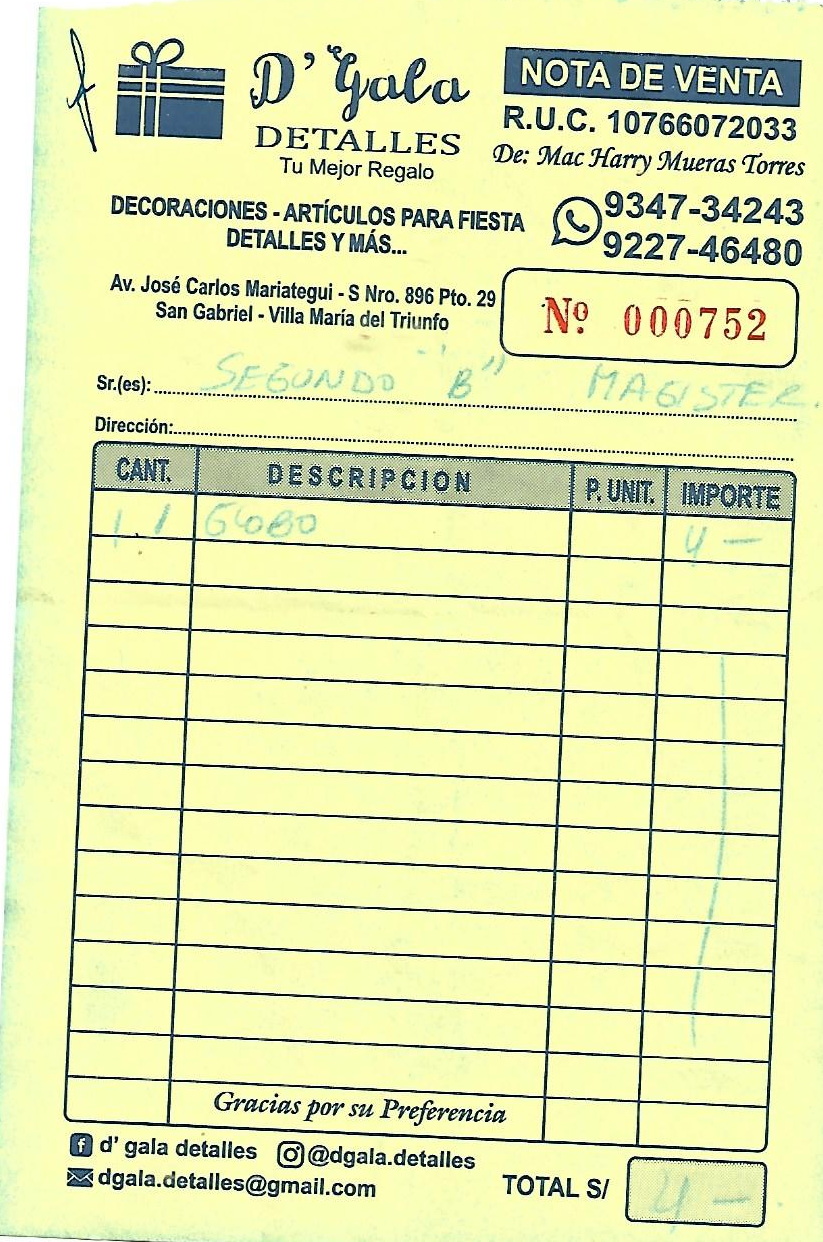 D' Gala
DETALLES
Tu Mejor Regalo
NOTA DE VENTA
R.U.C. 10766072033
De: Mac Harry Mueras Torres
DECORACIONES - ARTÍCULOS PARA FIESTA
DETALLES Y MÁS...
9347-34243
9227-46480
Av. José Carlos Mariategui - S Nro. 896 Pto. 29
San Gabriel - Villa María del Triunfo
Nº 000752
Sr.(es): SEGUNDO "B" MAGISTER
Dirección:
CANT. DESCRIPCION P. UNIT. IMPORTE
1 GLOBO 4 —
Gracias por su Preferencia
d' gala detalles @dgala.detalles
dgala.detalles@gmail.com
TOTAL S/ 4 —